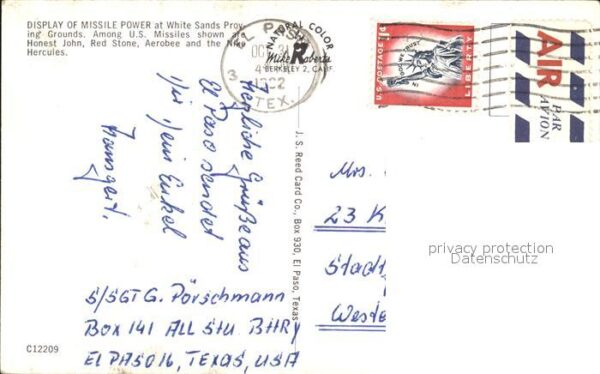 DISPLAY OF MISSILE POWER at White Sands Prov-
ing Grounds. Among U.S. Missiles shown are
Honest John, Red Stone, Aerobee and the Nike
Hercules.
EL PASO
OCT 31
3
1962
TEX.
NATURAL COLOR
Mike Roberts
BERKELEY 2, CALIF
U.S. POSTAGE
IN GOD WE TRUST
LIBERTY
AIR
PAR AVION
Herzliche Grüße aus
El Paso sendet
Dir Dein Enkel
Hansgert.
J. S. Reed Card Co., Box 930, El Paso, Texas
S/SGT G. Pörschmann
Box 141 All Stu. BTRY
El PASO 16, TEXAS, USA
Mrs.
23 K
Stadt
Weste
privacy protection
Datenschutz
C12209